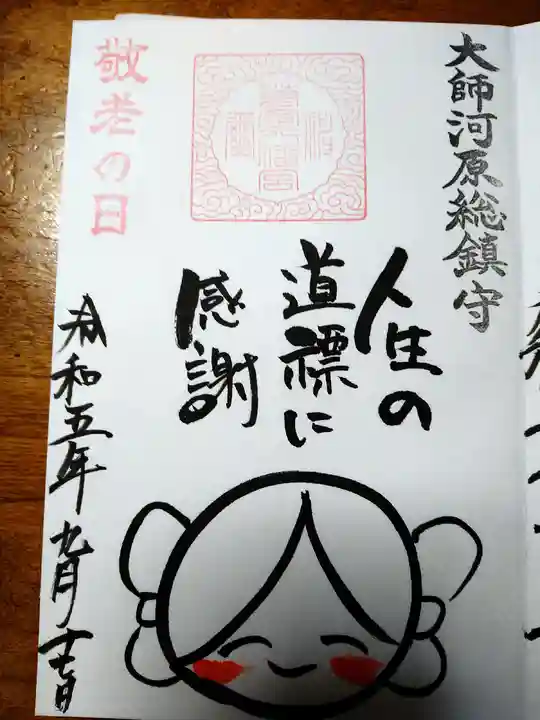 大師河原総鎮守
人生の
道標に
感謝
敬老の日
令和五年九月十七日